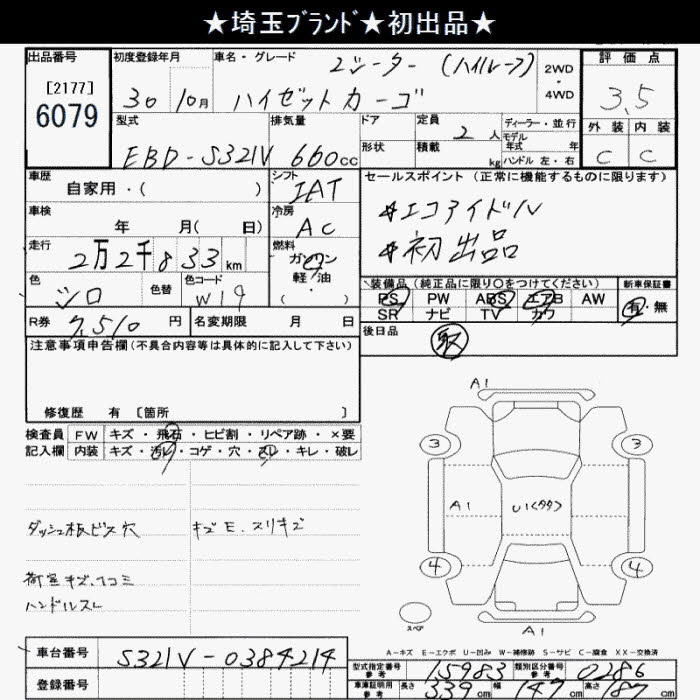 ★埼玉ﾌﾞﾗﾝﾄﾞ★初出品★
出品番号
[2177]
6079
初度登録年月
30 10月
車名・グレード
2シーター (ハイルーフ)
ハイゼットカーゴ
2WD
・
4WD
評価点
3.5
外装 内装
C C
型式
EBD-S321V
排気量
660cc
ドア
形状
定員
2人
積載
kg
ディーラー・並行
モデル
年式 年
ハンドル 左・右
車歴
自家用・( )
シフト
IAT
セールスポイント (正常に機能するものに限ります)
#エコアイドル
#初出品
車検
年 月( 日)
冷房
AC
走行
2万2千833km
燃料
ガソリン
軽油
( )
色
シロ
色替
色コード
W19
装備品 (純正品に限り○をつけてください)
PS PW ABS エアB AW
SR ナビ TV カワ
新車保証書
有・無
R券
7,510円
名変期限 月 日
後日品
取
注意事項申告欄(不具合内容等は具体的に記入して下さい)
修復歴 有 [箇所 ]
検査員
記入欄
FW キズ・飛石・ヒビ割・リペア跡・×要
内装 キズ・汚れ・コゲ・穴・スレ・キレ・破レ
ダッシュ板ビス穴
キズE.スリキズ
荷室キズ、ヘコミ
ハンドルスレ
A1
3 3
A1 U1(タタ)
4 4
スペア
A1
A-キズ E-エクボ U-凹み W-補修跡 S-サビ C-腐食 XX-交換済
車台番号
S321V-0384214
登録番号
型式指定番号
参考
15983
類別区分番号
参考
0286
車庫証明用
参考
長さ 339cm 幅 147cm 高さ 187cm